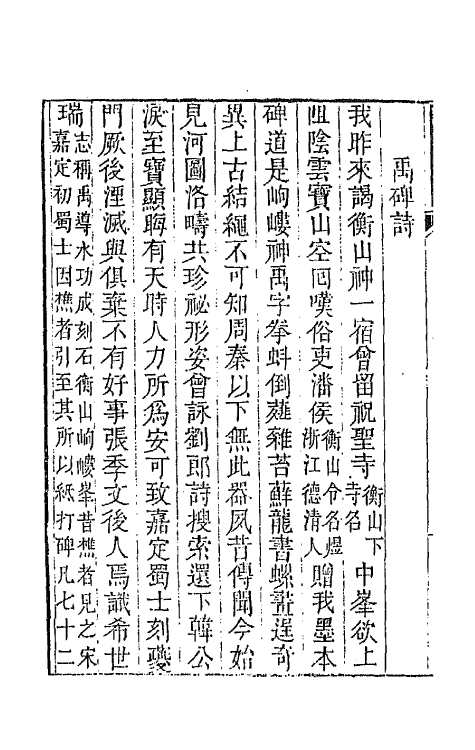 禹碑詩
我昨來謁衡山神一宿曾留祝聖寺衡山下寺名中峯欲上
阻陰雲寶山空囘嘆俗吏潘侯衡山令名煜浙江德清人贈我墨本
碑道是岣嶁神禹字拳蚪倒薤雜苔蘚龍書螺書逞奇
異上古結繩不可知周秦以下無此器夙昔傳聞今始
見河圖洛疇共珍祕形姿曾詠劉郎詩搜索還下韓公
淚至寶顯晦有天時人力所爲安可致嘉定蜀士刻夔
門厥後湮滅與俱棄不有好事張季文後人焉識希世
瑞志稱禹導水功成刻石衡山岣嶁峯昔樵者見之宋嘉定初蜀士因樵者引至其所以紙打碑凡七十二